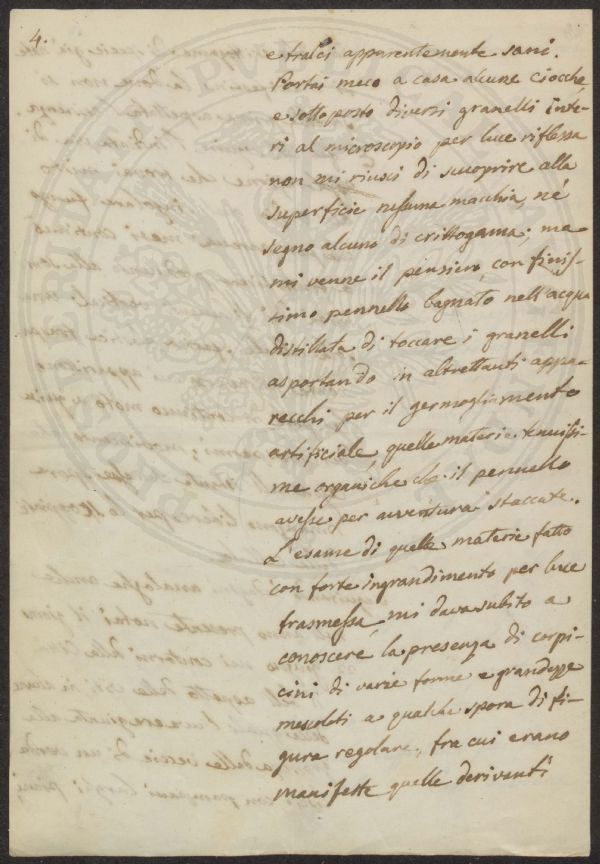 4.
e tralci apparentemente sani.
Portai meco a casa alcune ciocche,
e sottoposto diversi granelli inte-
ri al microscopio per luce riflessa
non mi riuscì di scuoprire alla
superficie nessuna macchia, né
segno alcuno di crittogama; ma
mi venne il pensiero, con finis-
simo pennello bagnato nell'acqua
distillata di toccare i granelli
asportando in altrettanti appa-
recchi per il germogliamento
artificiale, quelle materie tenuissi-
me organiche che il pennello
avesse per avventura staccate.
L'esame di quelle materie fatto
con forte ingrandimento per luce
trasmessa, mi dava subito a
conoscere la presenza di corpi-
cini di varie forme e grandezze
mescolati a qualche spora di fi-
gura regolare, fra cui erano
manifeste quelle derivanti